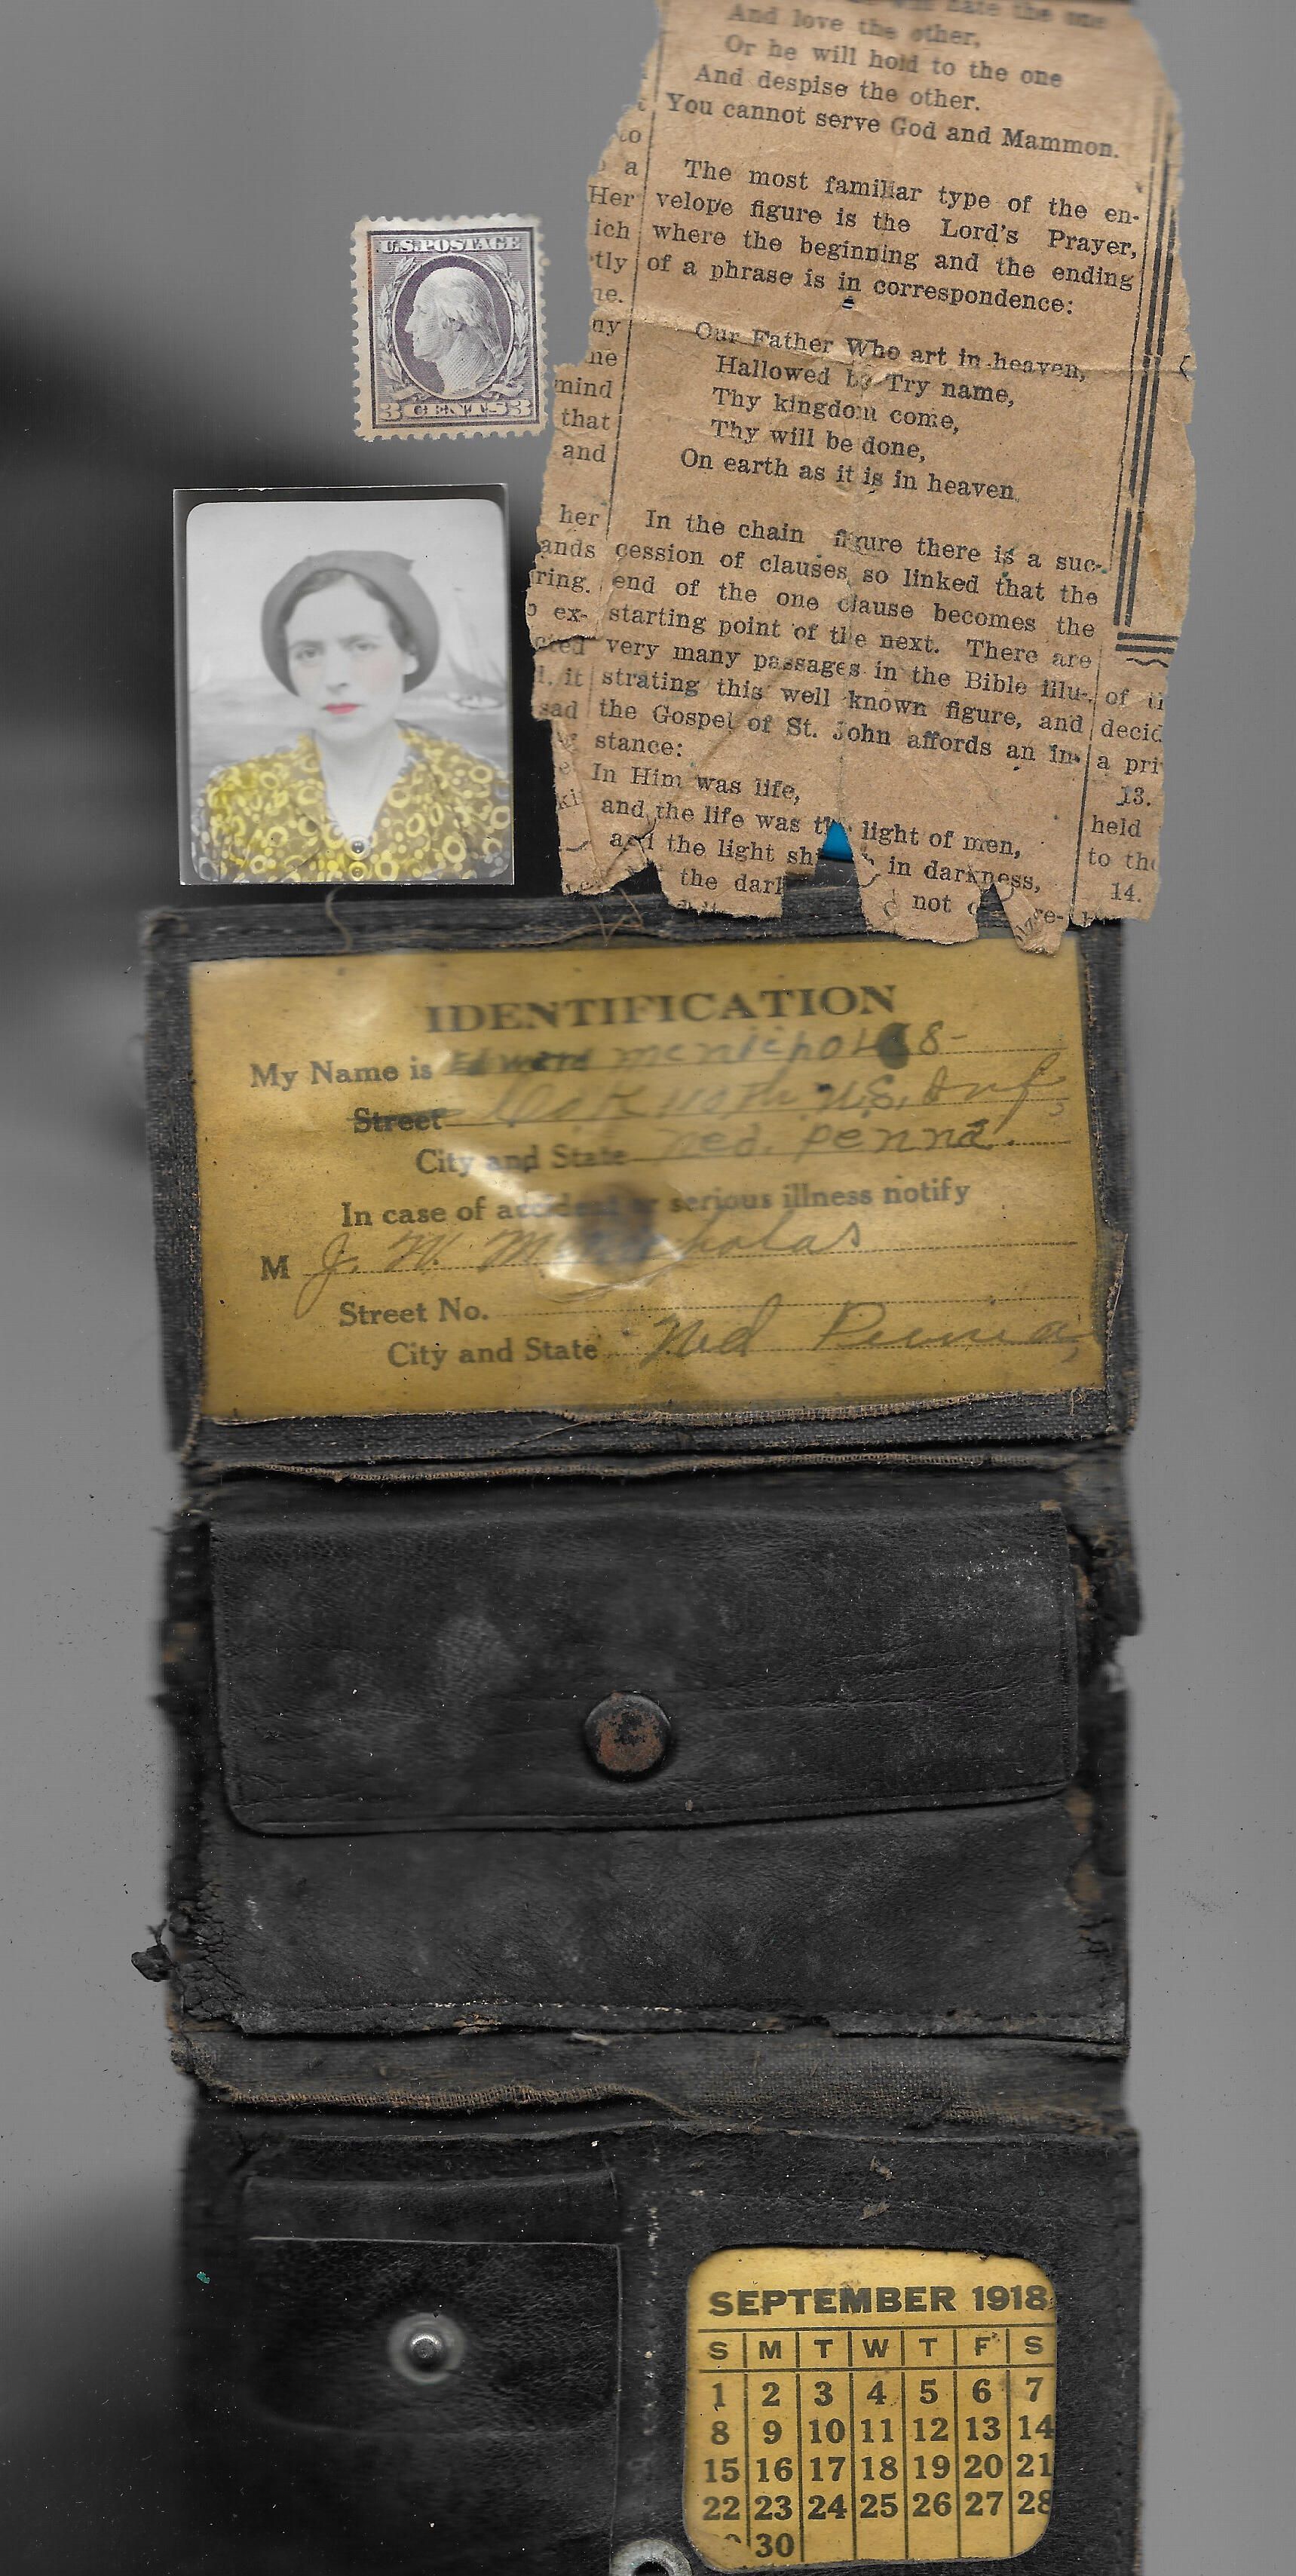 U.S. POSTAGE
3 CENTS 3
hate the one
And love the other,
Or he will hold to the one
And despise the other.
You cannot serve God and Mammon.
The most familiar type of the en-
velope figure is the Lord's Prayer,
where the beginning and the ending
of a phrase is in correspondence:
Our Father Who art in heaven,
Hallowed be Try name,
Thy kingdom come,
Thy will be done,
On earth as it is in heaven.
In the chain figure there is a suc-
cession of clauses so linked that the
end of the one clause becomes the
starting point of the next. There are
very many passages in the Bible illu-
strating this well known figure, and
the Gospel of St. John affords an in-
stance:
In Him was life,
and the life was the light of men,
and the light sh in darkness,
the dar
not
to
a
Her
ich
tly
ne.
ny
ne
mind
that
and
her
ands
ring.
ex-
cted
it
sad
of
decid
a pri
13.
held
to the
14.
IDENTIFICATION
My Name is Edward McNicholas-
Street Co. K 110th U.S. Inf
City and State Ned. Penna.
In case of accident or serious illness notify
M J. W. McNicholas
Street No.
City and State Ned Penna,
SEPTEMBER 1918
S M T W T F S
1 2 3 4 5 6 7
8 9 10 11 12 13 14
15 16 17 18 19 20 21
22 23 24 25 26 27 28
30